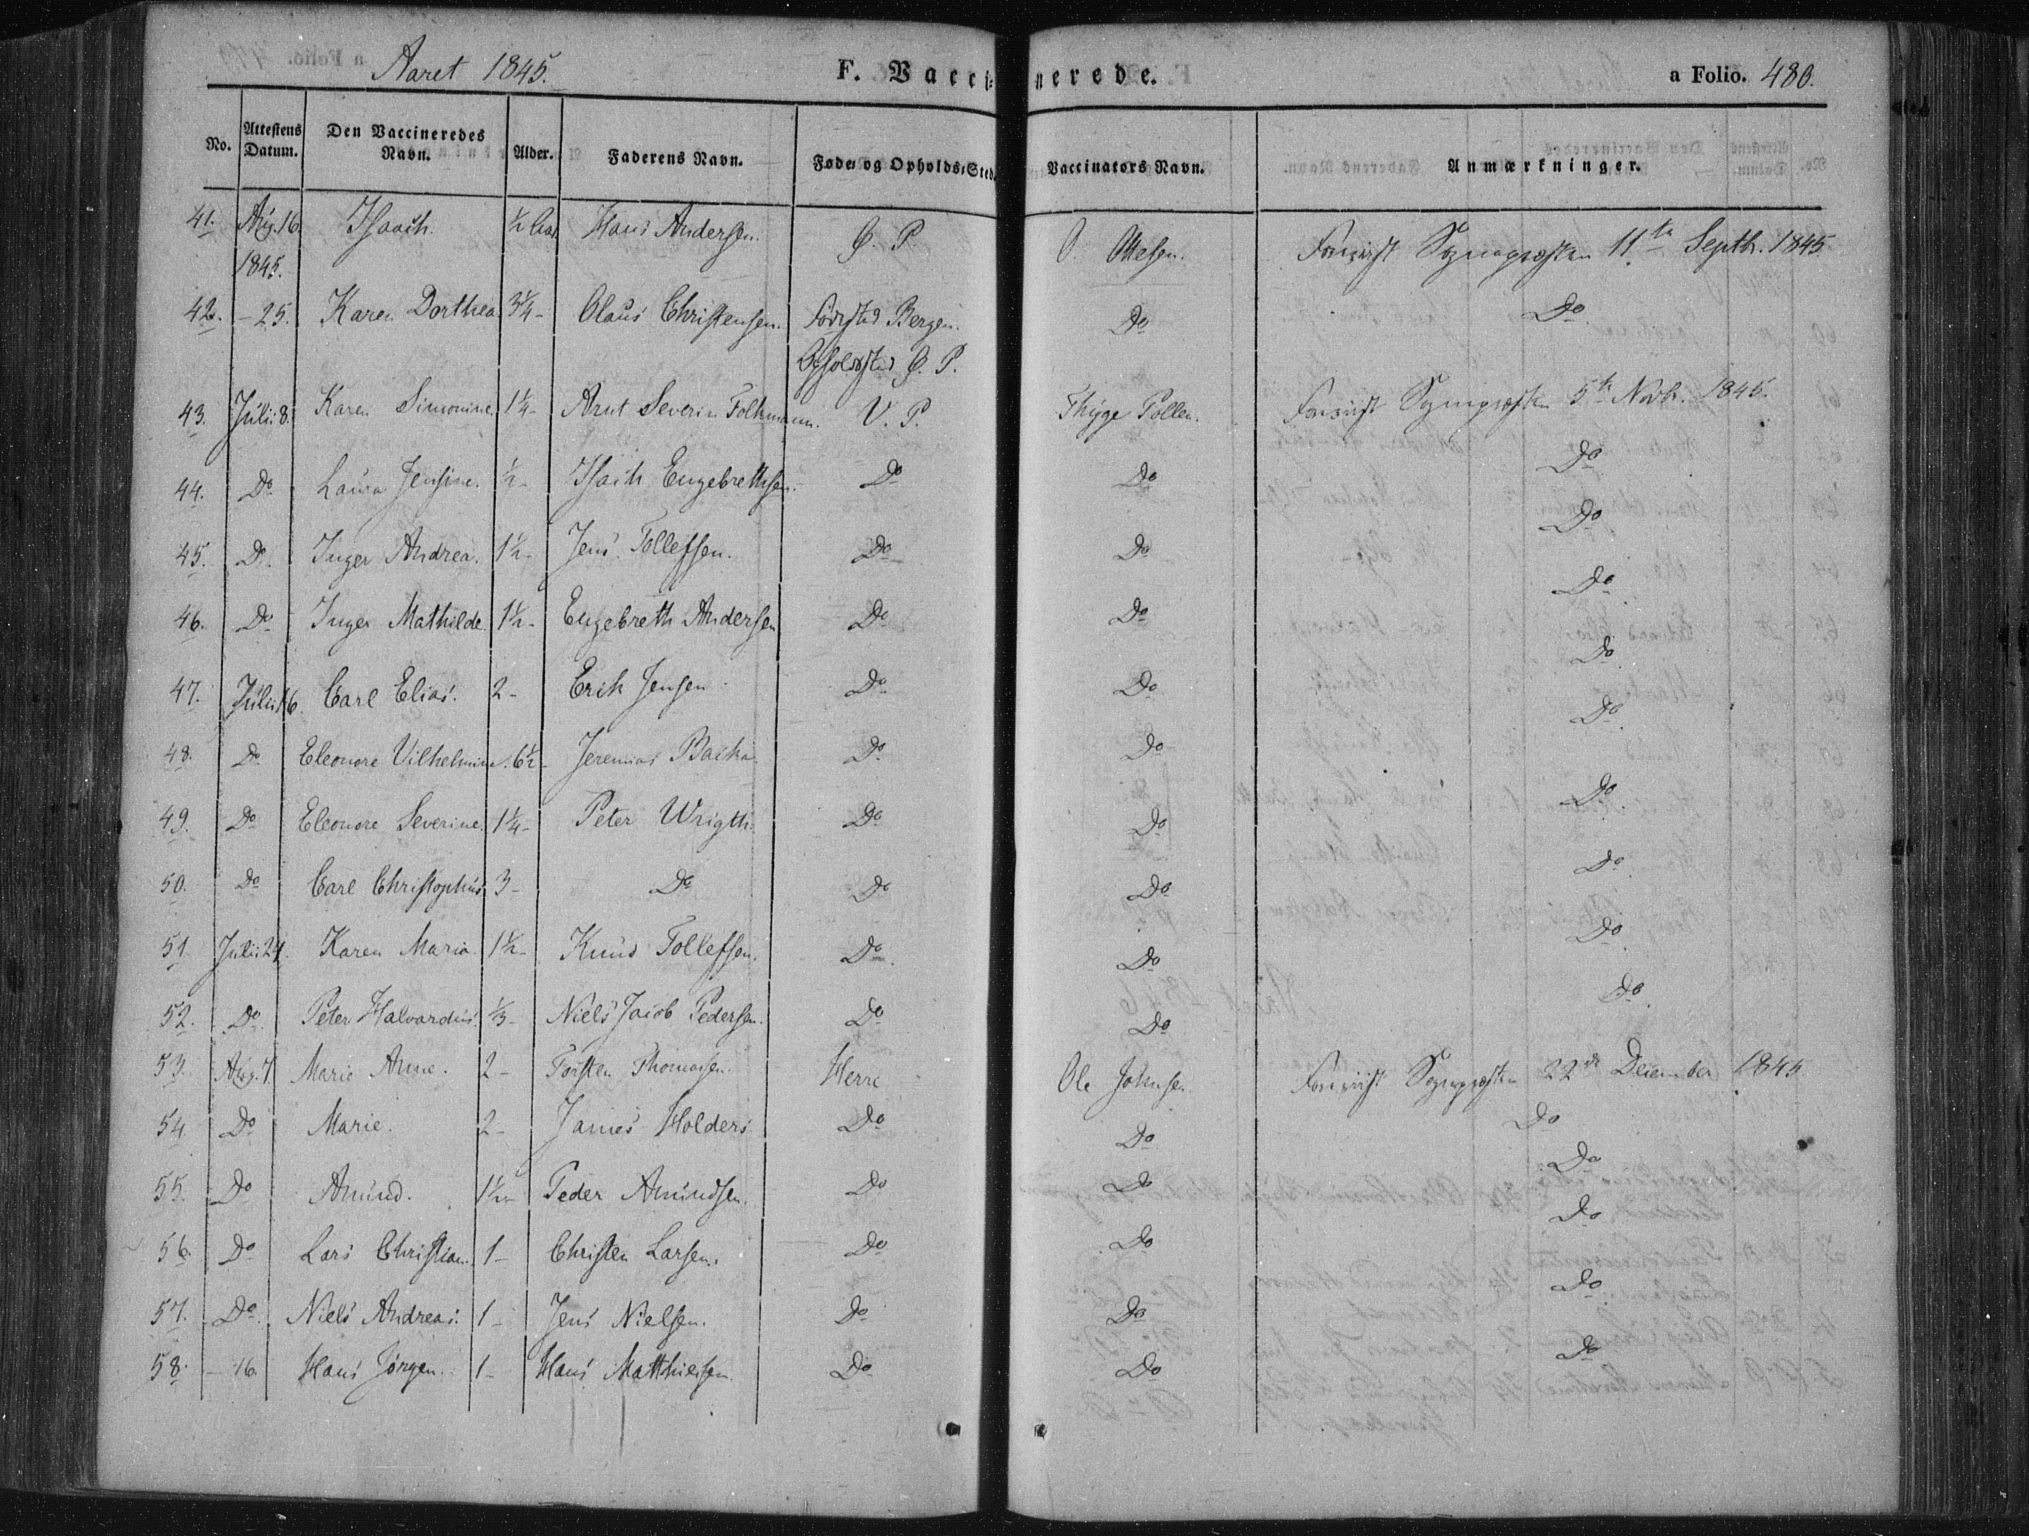 Aaret 1845. F. Vaccinerede. a Folio. 480.
No. Attestens Datum. Den Vaccineredes Navn. Alder. Faderens Navn. Føde- og Opholds-Sted. Vaccinators Navn. Anmærkninger.
41. Aug. 16 1845. Isaach. ½ Hans Andersen. Ø. P. O. Ottesen. Sognepræsten 11te Septbr. 1845
42. - 25. Karen Dorthea 3¼ - Olaus Christensen. Fødested Bergen. Do Do
Opholdssted Ø. P.
43. Julii 8. Karen Simonine. 1¼ - Arnt Severin Folkmann. V. P. Thyge Pollen. Sognepræsten 5te Novbr. 1845.
44. Do Laura Jensine. ½ - Isach Engebrethsen. Do Do Do
45. Do. Inger Andrea. 1½ - Jens Tollefsen. Do Do Do
46. Do Inger Mathilde. 1½ - Engebreth Andersen Do Do Do
47. Julii 16. Carl Elias. 2 - Erik Jensen Do Do Do
48. Do Eleonore Vilhelmine. 6½ - Jeremias Backa Do. Do Do
49. Do Eleonore Severine. 1¼ - Peter Wrigth. Do Do Do
50. Do Carl Christophus 3 - Do Do Do Do
51. Julii 24. Karen Maria 1½ - Knud Tollefsen. Do Do Do
52. Do Peter Halvardus. ⅓ - Niels Jacob Pedersen. Do Do Do
53. Aug. 7 Marie Anne. 2 - Torsten Thomasen. Herre Ole Johnsen Sognepræsten 22de December 1845
54. Do Marie. 2 - James Holders Do Do Do
55. Do Amund. 1½ - Peder Amundsen. Do Do Do
56. Do Lars Christian. 1 - Christen Larsen. Do Do Do
57. Do Niels Andreas. 1 - Jens Nielsen. Do Do Do
58. - 16. Hans Jørgen. 1 - Hans Matthiesen Do Do Do